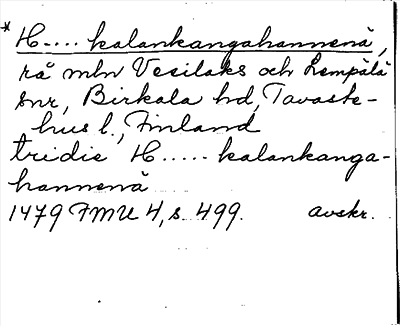 * H.... kalankangahannenä,
rå mln Vesilaks och Lempälä
snr, Birkala hd, Tavaste-
hus l., Finland
tridie H..... kalankanga-
hannenä
1479 FMU 4, s. 499. avskr.